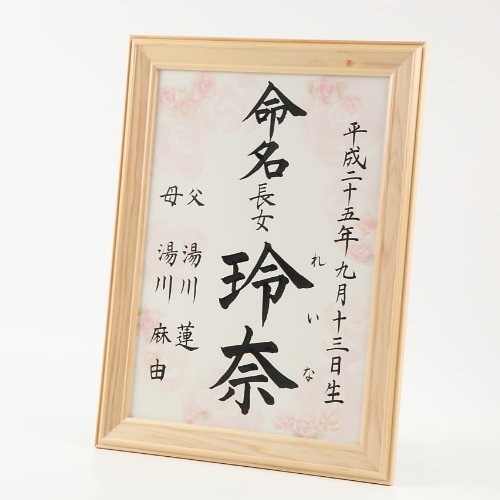 平成二十五年九月十三日生
命名
長女
玲奈
れいな
父 湯川 蓮
母 湯川 麻由